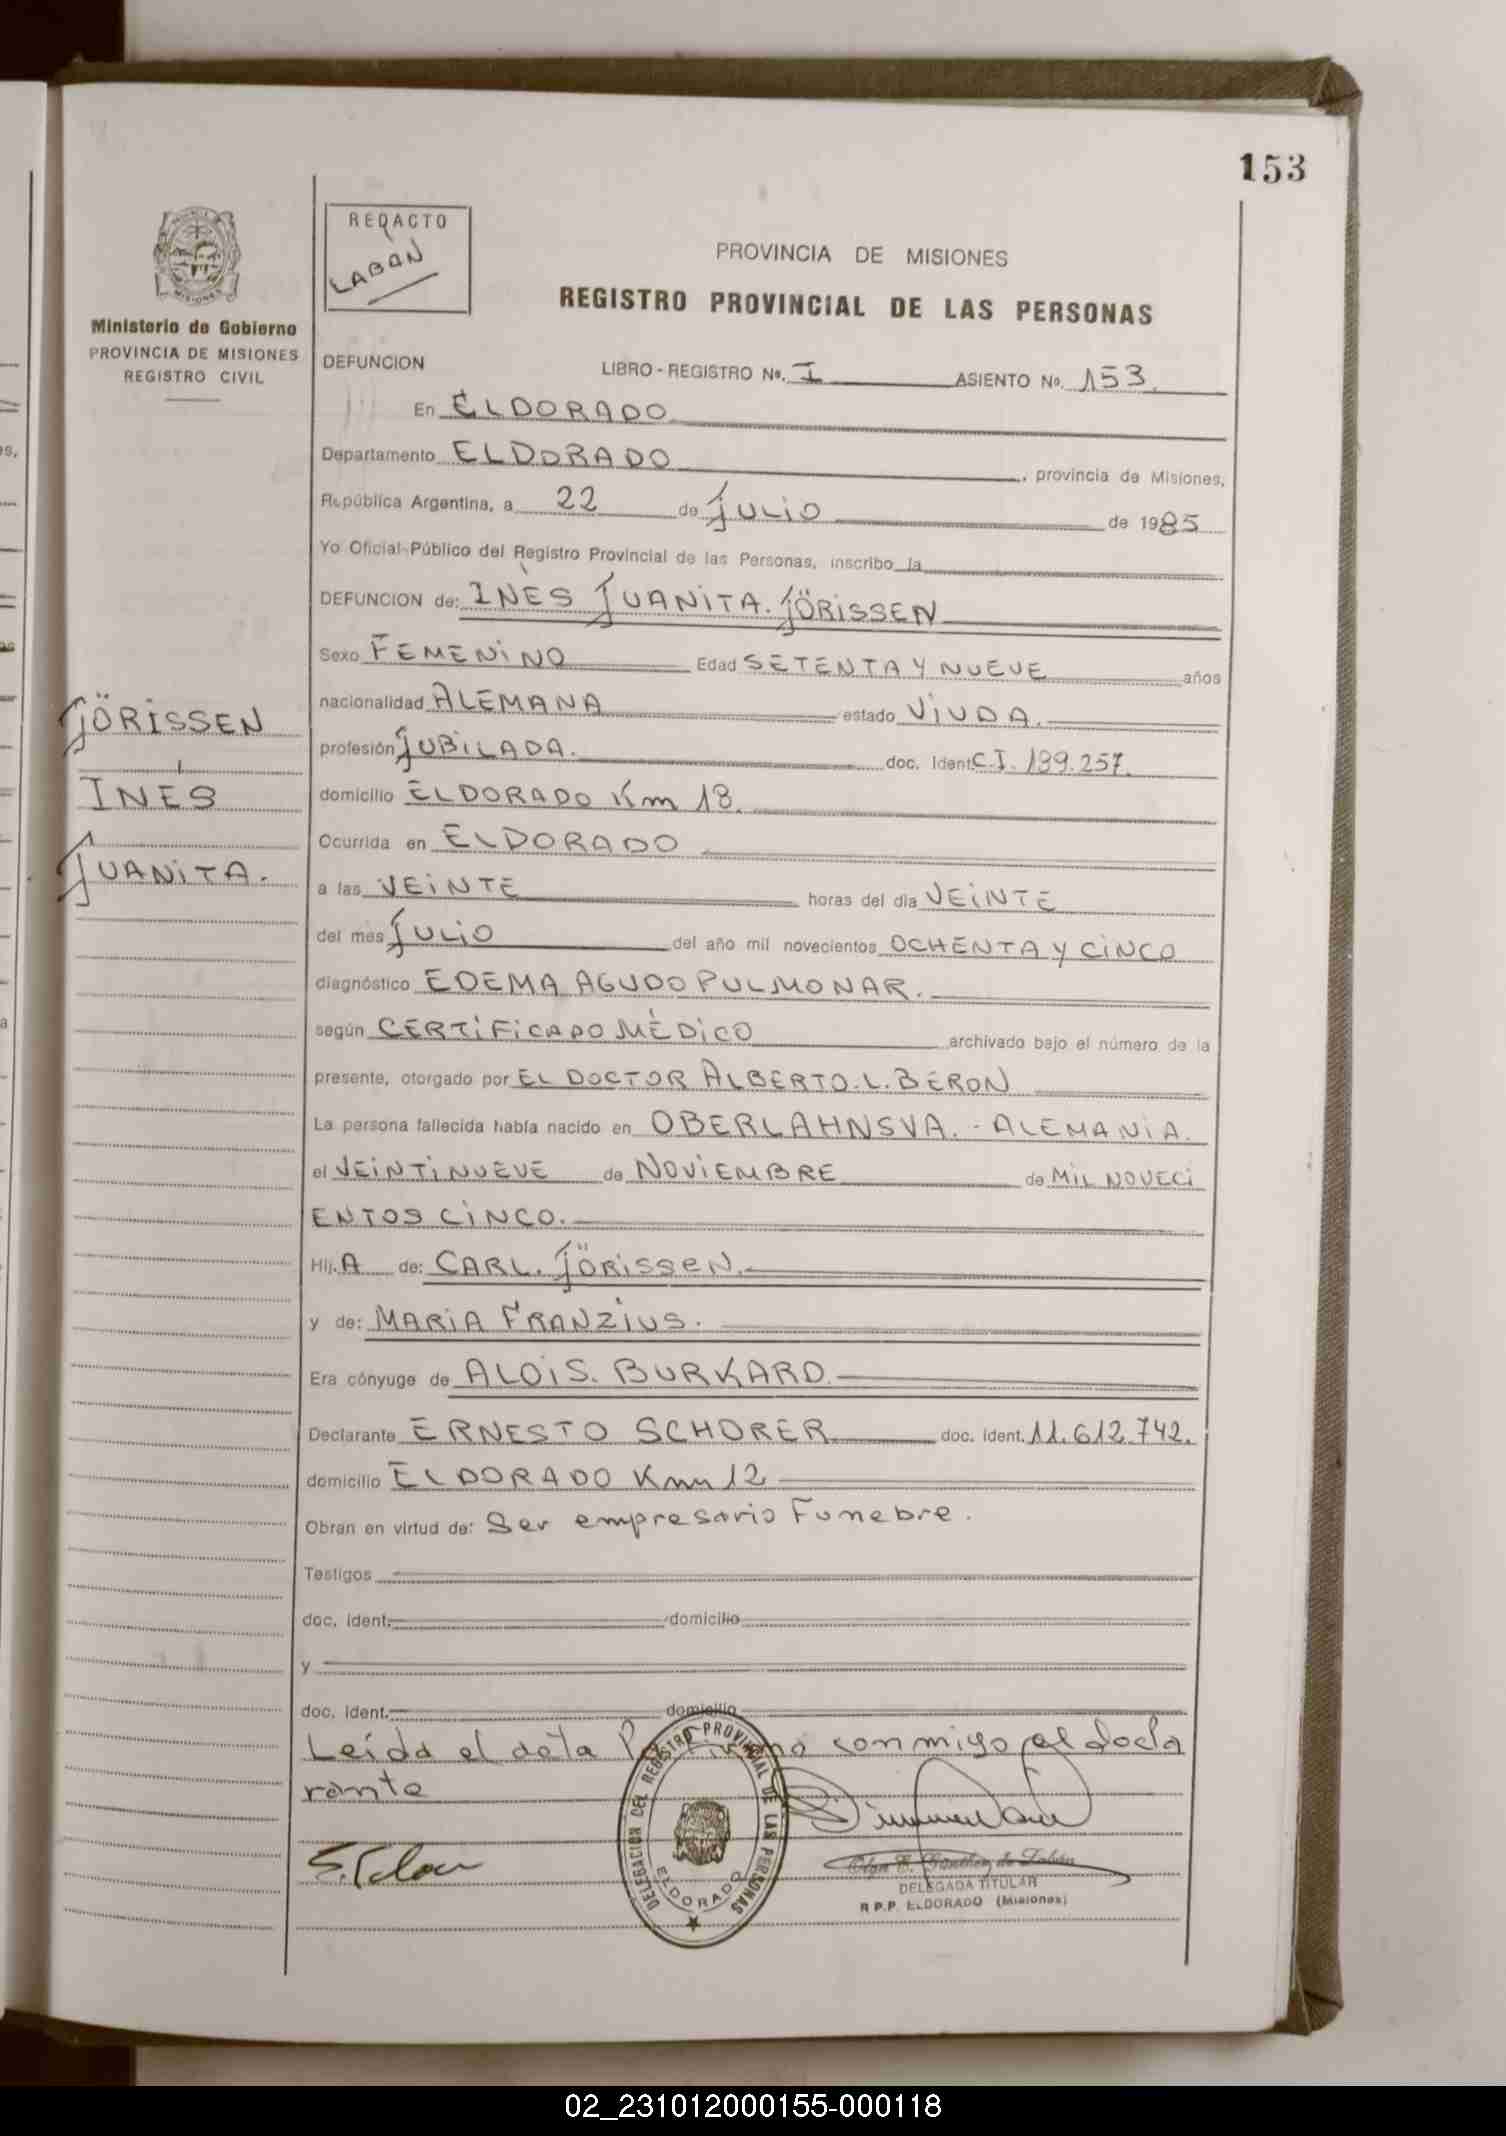 153
REDACTO
LABAN
MISIONES
Ministerio de Gobierno
PROVINCIA DE MISIONES
REGISTRO CIVIL
PROVINCIA DE MISIONES
REGISTRO PROVINCIAL DE LAS PERSONAS
DEFUNCION LIBRO - REGISTRO Nº. I ASIENTO Nº. 153.
En ELDORADO
Departamento ELDORADO, provincia de Misiones,
República Argentina, a 22 de JULIO de 1985
Yo Oficial Público del Registro Provincial de las Personas, inscribo la
DEFUNCION de: INÈS JUANITA. JÖRISSEN
Sexo FEMENINO Edad SETENTA Y NUEVE años
nacionalidad ALEMANA estado VIUDA.
profesión JUBILADA. doc. Ident. C.I. 199.257.
domicilio ELDORADO Km 18.
Ocurrida en ELDORADO
a las VEINTE horas del día VEINTE
del mes JULIO del año mil novecientos OCHENTA Y CINCO
diagnóstico EDEMA AGUDO PULMONAR.
según CERTIFICADO MÉDICO archivado bajo el número de la
presente, otorgado por EL DOCTOR ALBERTO. L. BERON
La persona fallecida había nacido en OBERLAHNSVA. - ALEMANIA.
el VEINTINUEVE de NOVIEMBRE de MIL NOVECI
ENTOS CINCO.
Hij.A de: CARL. JÖRISSEN.
y de: MARIA FRANZIUS.
Era cónyuge de ALOIS. BURKARD.
Declarante ERNESTO SCHORER doc. ident. 11.612.742.
domicilio ELDORADO Km 12
Obran en virtud de: Ser empresario Funebre.
Testigos
doc. ident. domicilio
y
doc. ident. domicilio
Leída el acta conmigo el decla
rante
JÖRISSEN
INÉS
JUANITA.
DELEGACION DEL REGISTRO PROVINCIAL DE LAS PERSONAS
ELDORADO
Olga E. Sánchez de Labán
DELEGADA TITULAR
R.P.P. ELDORADO (Misiones)
02_231012000155-000118